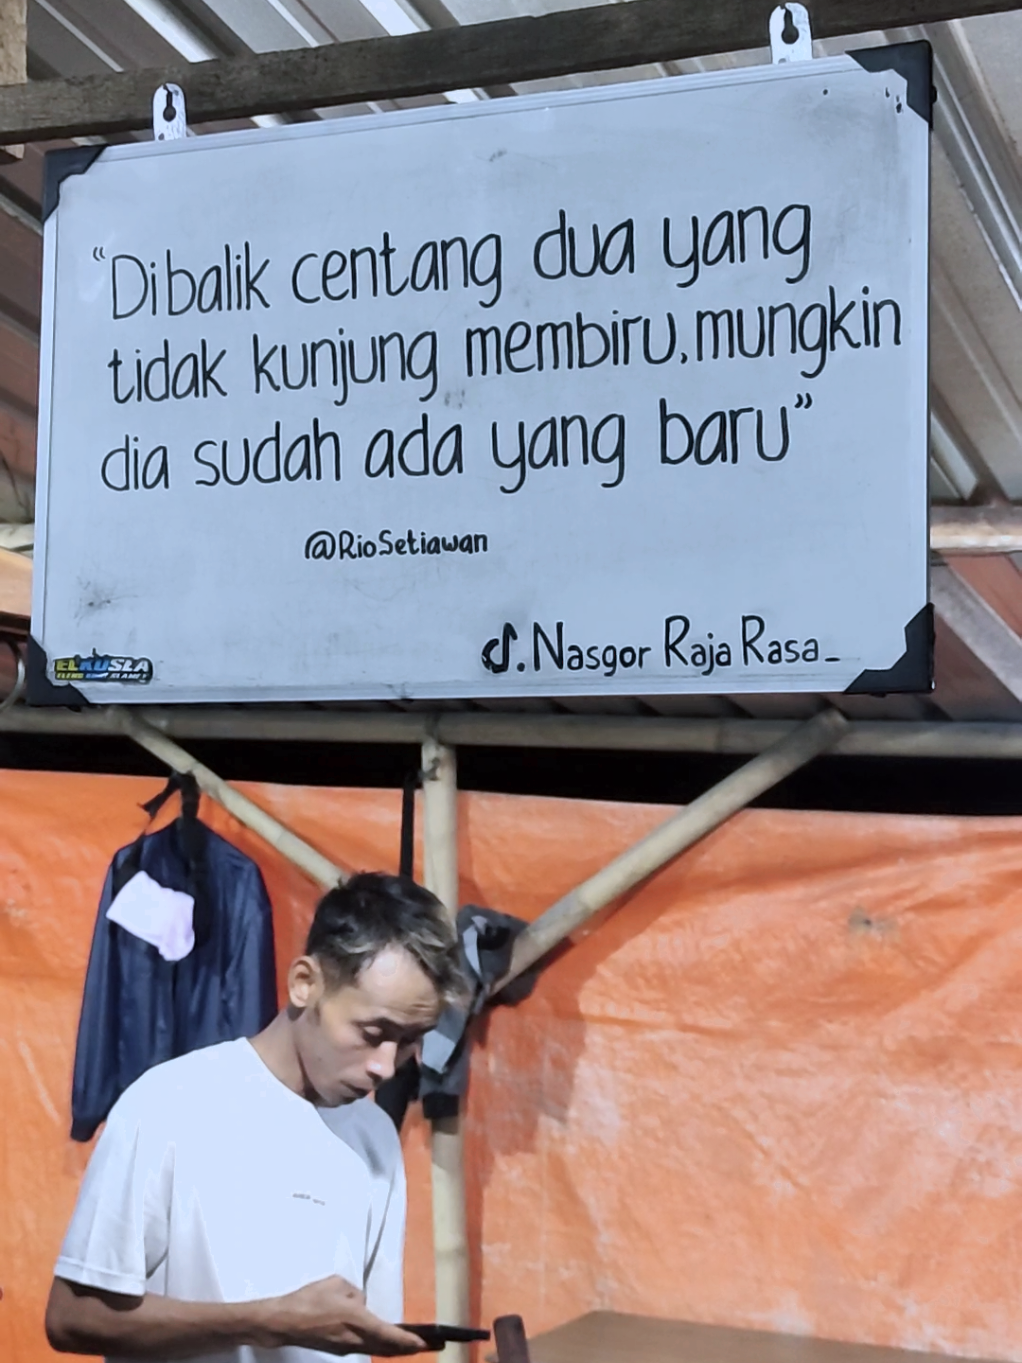 “Dibalik centang dua yang
tidak kunjung membiru, mungkin
dia sudah ada yang baru”
@RioSetiawan
Nasgor Raja Rasa_
ELKUSLA